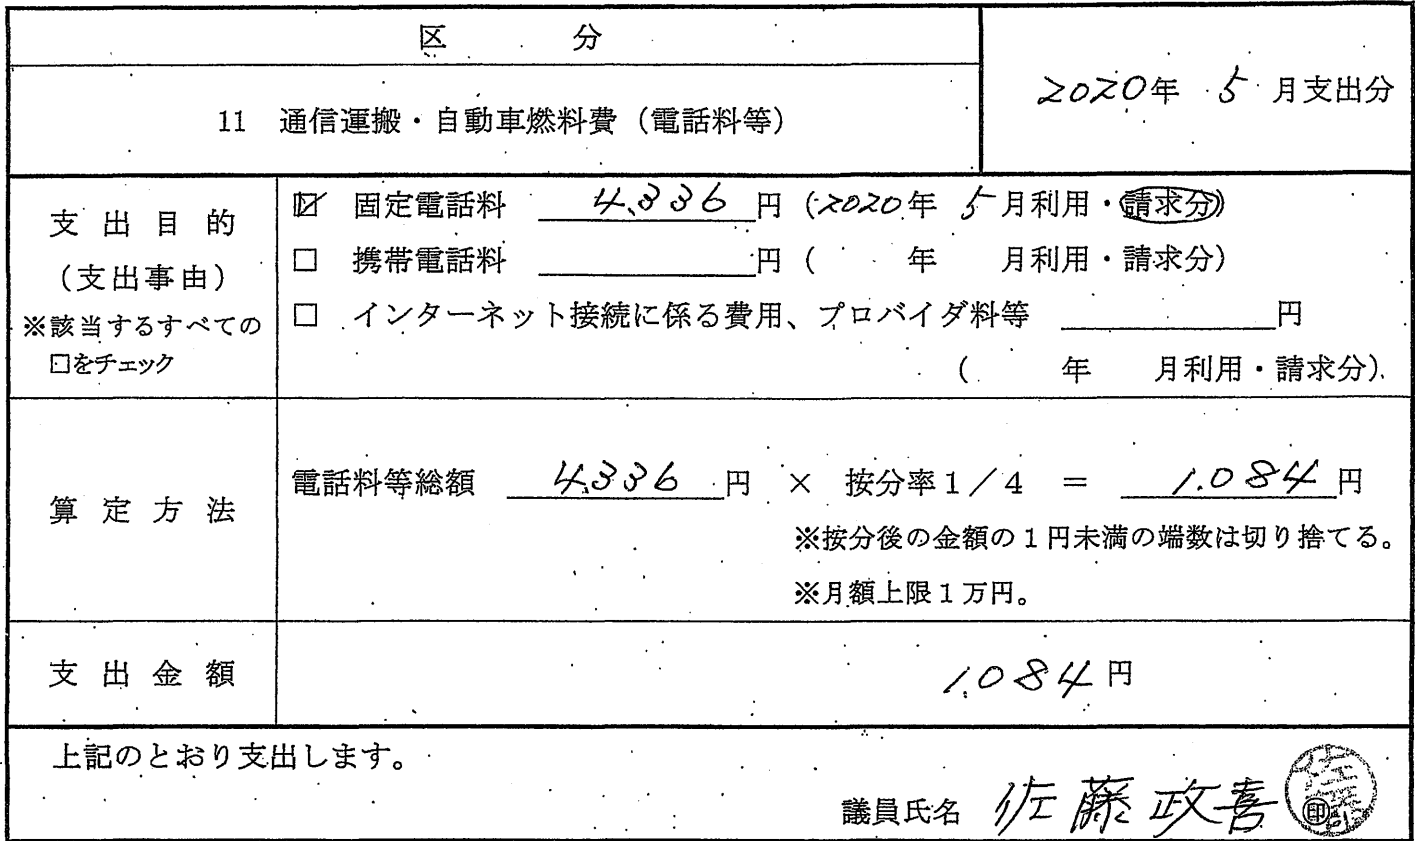 区　分
2020年 5 月支出分
11　通信運搬・自動車燃料費（電話料等）
支出目的
（支出事由）
※該当するすべての
□をチェック
☑ 固定電話料 4,336 円（2020年 5月利用・請求分）
□ 携帯電話料 円（ 年 月利用・請求分）
□ インターネット接続に係る費用、プロバイダ料等 円
（ 年 月利用・請求分）
算定方法
電話料等総額 4,336 円 × 按分率1／4 ＝ 1,084 円
※按分後の金額の1円未満の端数は切り捨てる。
※月額上限1万円。
支出金額
1,084円
上記のとおり支出します。
議員氏名 佐藤政喜 印
佐藤